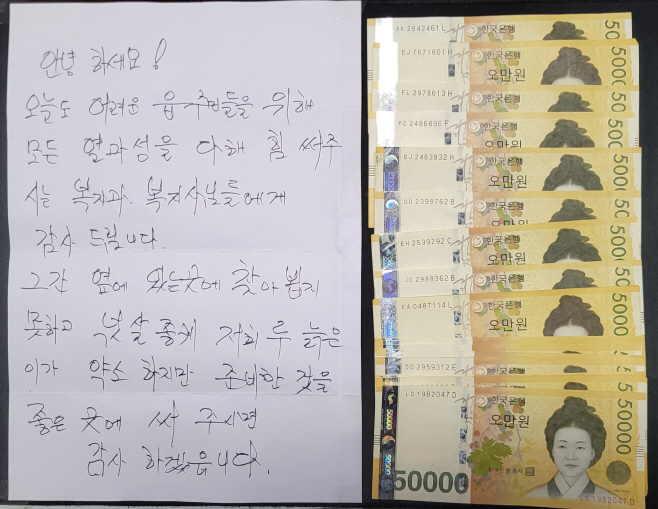 안녕 하세요!
오늘도 어려운 읍 주민들을 위해
모든 열과성을 다해 힘 써주
시는 복지과. 복지사님들에게
감사 드립니다.
그간 옆에 있는곳에 찾아 뵙지
못하고 넉살 좋게 저희 두 늙은
이가 약소 하지만 준비한 것을
좋은 곳에 써 주시면
감사 하겠읍니다.
AK 2842461 L
한국은행
EJ 7671601 H
한국은행
오만원
FL 2978613 H
한국은행
FC 2486896 F
한국은행
오만원
DJ 2463832 H
한국은행
오만원
DD 2399762 B
한국은행
EH 2539292 C
한국은행
오만원
JC 2988362 B
한국은행
EA 0487114 L
한국은행
오만원
DD 2959312 E
한국은행
LD 1982047 D
한국은행
오만원
50000
50000
50000
LD 1982047 D